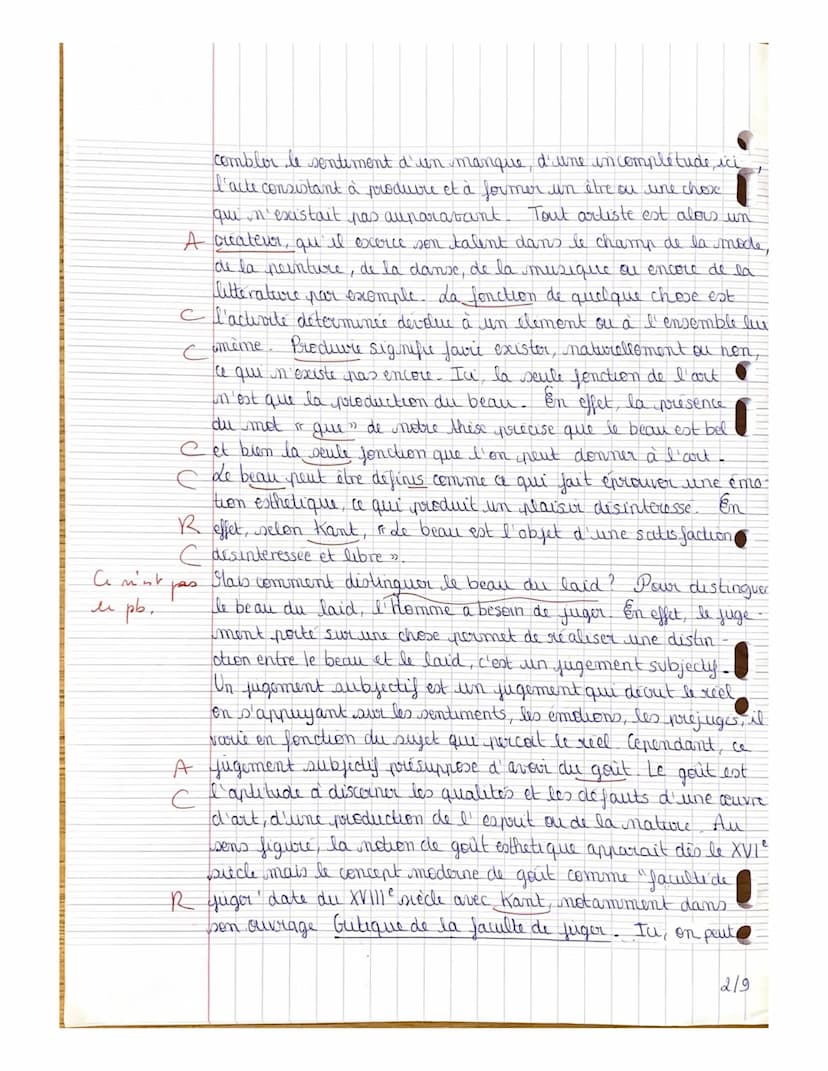 combler le sentiment d'un manque, d'une incomplétude, ici,
l'acte consistant à produire et à former un être ou une chose
qui n'existait pas auparavant. Tout artiste est alors un
A créateur, qu'il exerce son talent dans le champ de la mode,
de la peinture, de la danse, de la musique ou encore de la
littérature par exemple. La fonction de quelque chose est
C l'activité déterminée dévolue à un élément ou à l'ensemble lui
C même. Produire signifie faire exister, naturellement ou non,
ce qui n'existe pas encore. Ici, la seule fonction de l'art
n'est que la production du beau. En effet, la présence
du mot " que " de notre thèse précise que le beau est bel
C et bien la seule fonction que l'on peut donner à l'art.
C Le beau peut être définis comme ce qui fait éprouver une émo-
tion esthétique, ce qui produit un plaisir désintéressé. En
R effet, selon Kant, " le beau est l'objet d'une satisfaction
C désintéressée et libre ".
Ce n'est pas Mais comment distinguer le beau du laid ? Pour distinguer
le pb. le beau du laid, l'Homme a besoin de juger. En effet, le juge-
ment porté sur une chose permet de réaliser une distin-
ction entre le beau et le laid, c'est un jugement subjectif.
Un jugement subjectif est un jugement qui décrit le réel
en s'appuyant sur les sentiments, les émotions, les préjugés, il
varie en fonction du sujet qui perçoit le réel. Cependant, ce
A jugement subjectif présuppose d'avoir du goût. Le goût est
C l'aptitude à discerner les qualités et les défauts d'une œuvre
d'art, d'une production de l'esprit ou de la nature. Au
sens figuré, la notion de goût esthétique apparait dès le XVIe
siècle mais le concept moderne de goût comme "faculté de
R juger" date du XVIIIe siècle avec Kant, notamment dans
son ouvrage Critique de la faculté de juger. Ici, on peut
2/9